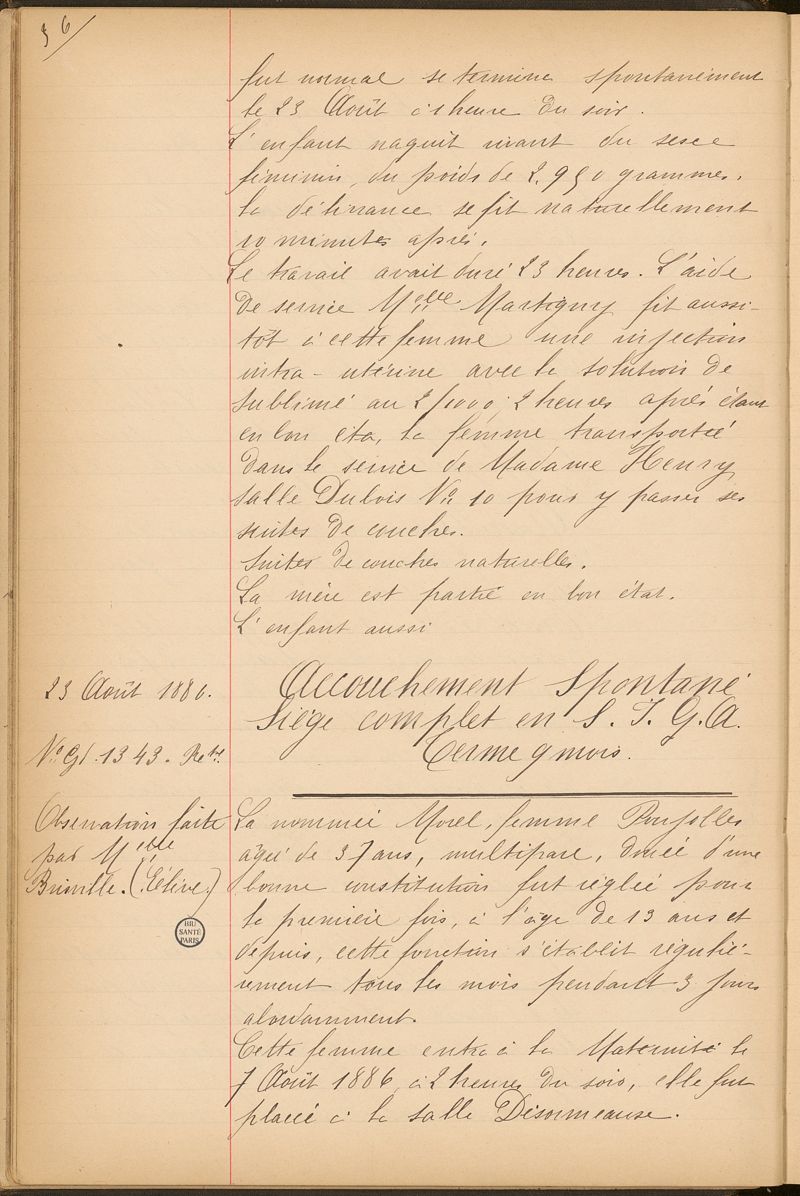 36
fut normal se termina spontanément
le 23 Août à 1 heure du soir.
L'enfant naquit vivant du sexe
féminin, du poids de 2.950 grammes.
La délivrance se fit naturellement
10 minutes après.
Le travail avait duré 23 heures. L'aide
de service Melle Martigny fit aussi-
tôt à cette femme une injection
intra-utérine avec la solution de
sublimé au 2/1000; 2 heures après étant
en bon éta, la femme transportée
dans le service de Madame Henry
salle Dubois No 10 pour y passer ses
suites de couches.
Suites de couches naturelles.
La mère est partie en bon état.
L'enfant aussi
23 Août 1886.
No Gl. 1343. Retre.
Accouchement Spontané
Siège complet en S. I. G. A.
Terme 9 mois.
Observation faite
par Melle
(Elève.)
HIU
SANTÉ
PARIS
La nommée Morel, femme Poujolles
âgée de 37 ans, multipare, douée d'une
bonne constitution fut réglée pour
la première fois, à l'âge de 13 ans et
depuis, cette fonction s'établit réguliè-
rement tous les mois pendant 3 jours
abondamment.
Cette femme entra à la Maternité le
7 Août 1886, à 2 heures du soir, elle fut
placée à la salle Désormeause.